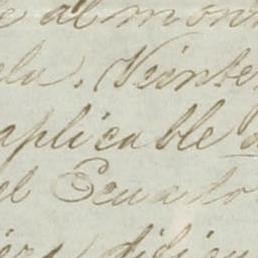 e al mon
ela. Veinte
aplicable a
el Ecuado